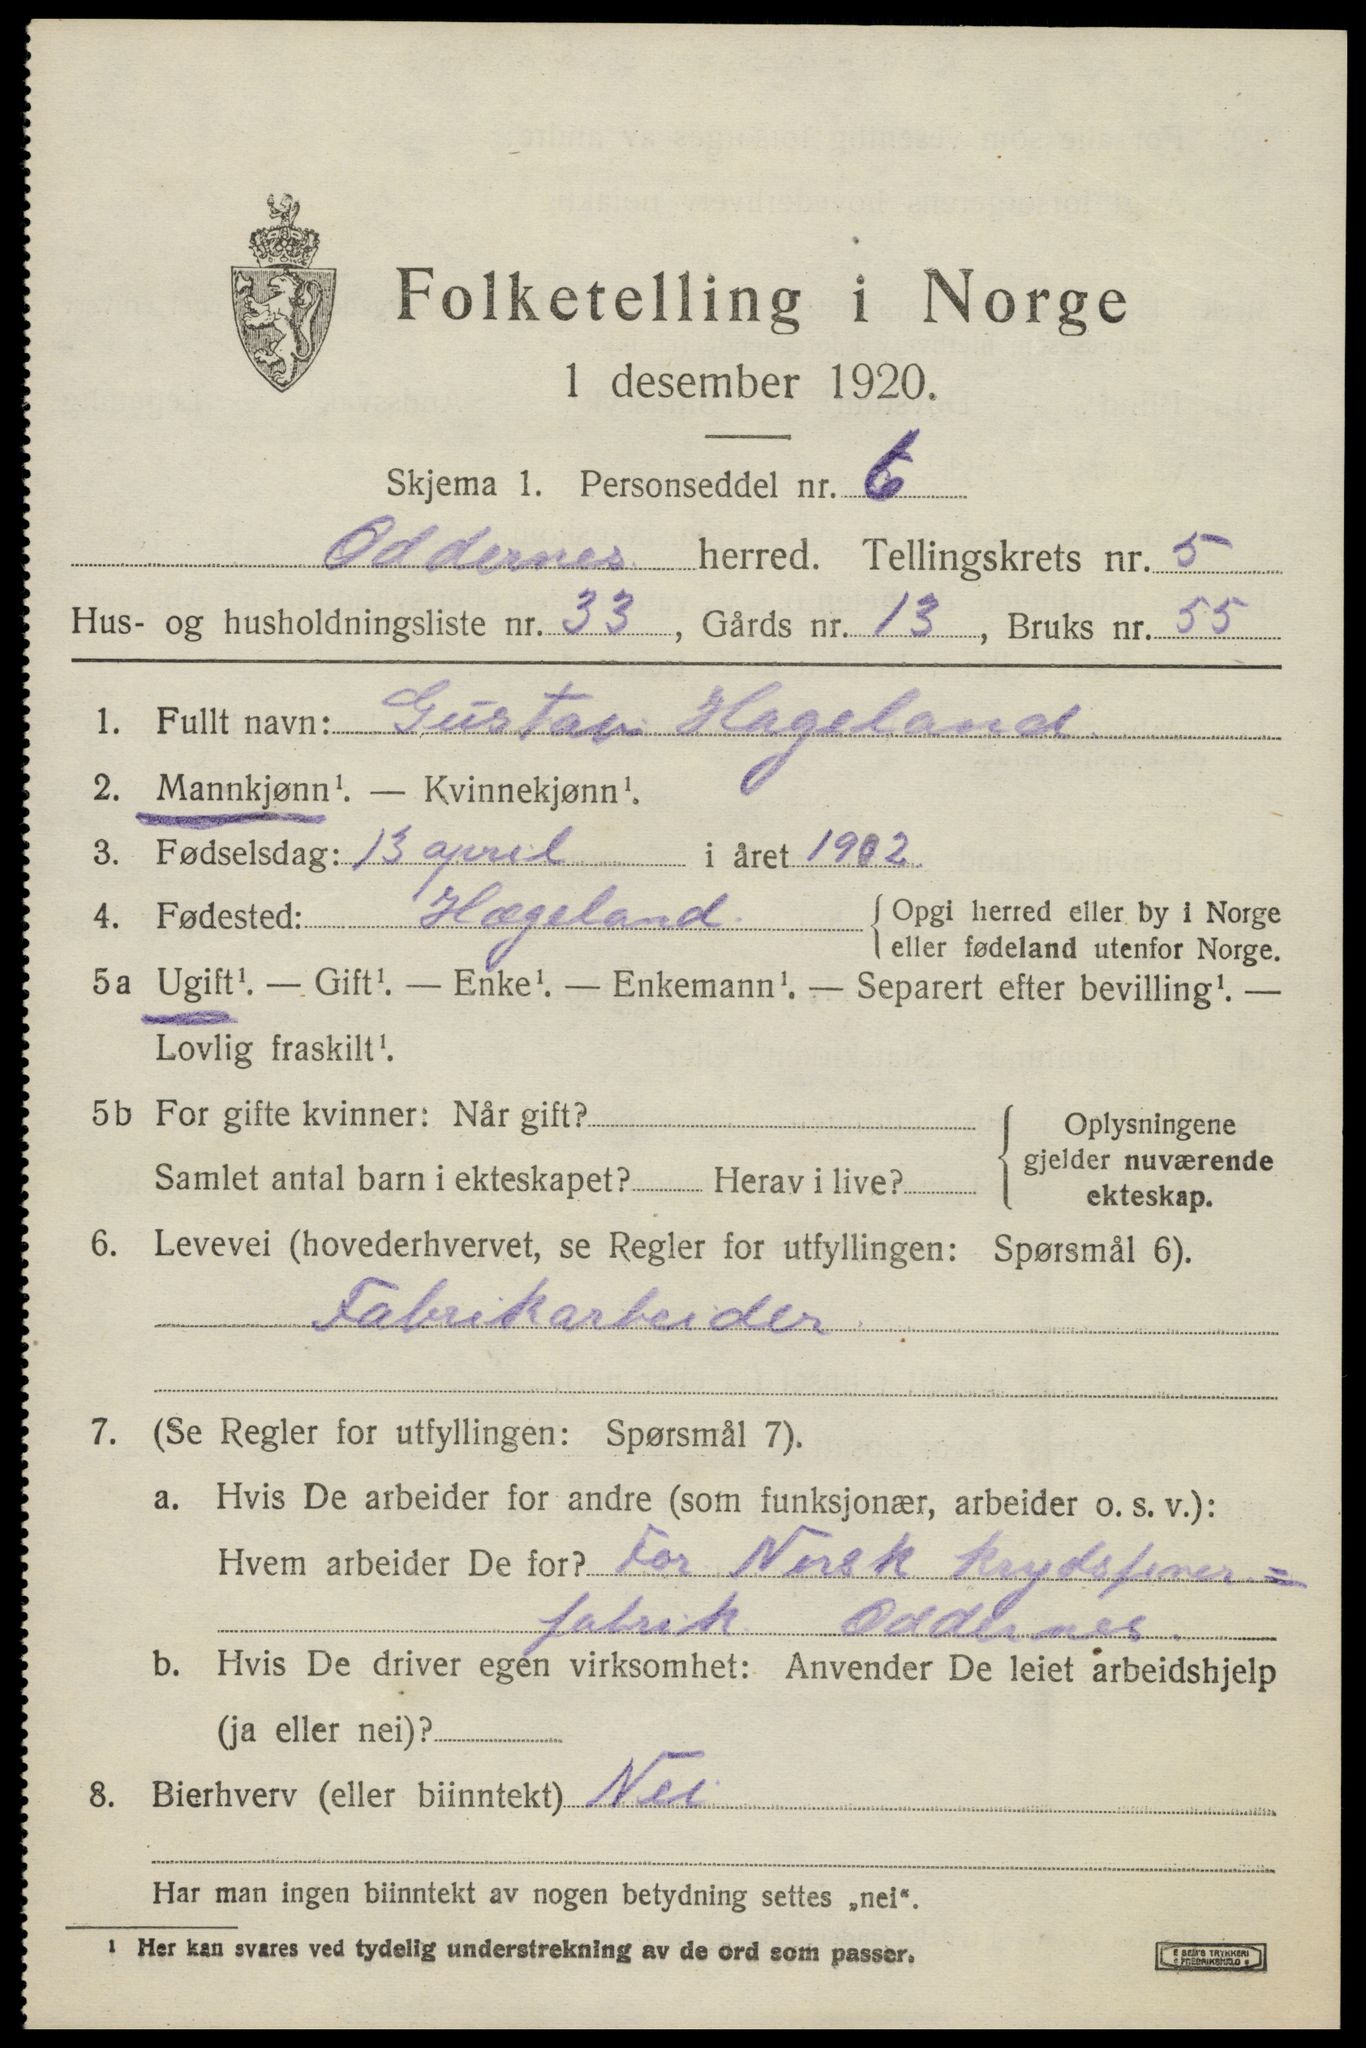 Folketelling i Norge
1 desember 1920.
Skjema 1. Personseddel nr. 6
Oddernes herred. Tellingskrets nr. 5
Hus- og husholdningsliste nr. 33, Gårds nr. 13, Bruks nr. 55
1. Fullt navn: Gustav Hageland.
2. Mannkjønn¹. — Kvinnekjønn¹.
3. Fødselsdag: 13 april i året 1902.
4. Fødested: Hægeland. { Opgi herred eller by i Norge
eller fødeland utenfor Norge.
5a Ugift¹. — Gift¹. — Enke¹. — Enkemann¹. — Separert efter bevilling¹. —
Lovlig fraskilt¹.
5b For gifte kvinner: Når gift?
Samlet antal barn i ekteskapet? Herav i live?
{ Oplysningene
gjelder nuværende
ekteskap.
6. Levevei (hovederhvervet, se Regler for utfyllingen: Spørsmål 6).
Fabrikarbeider.
7. (Se Regler for utfyllingen: Spørsmål 7).
a. Hvis De arbeider for andre (som funksjonær, arbeider o. s. v.):
Hvem arbeider De for? For Norsk krydsfiner=
fabrik Oddernes.
b. Hvis De driver egen virksomhet: Anvender De leiet arbeidshjelp
(ja eller nei)?
8. Bierhverv (eller biinntekt) Nei
Har man ingen biinntekt av nogen betydning settes „nei“.
¹ Her kan svares ved tydelig understrekning av de ord som passer.
E SEM'S TRYKKERI
FREDRIKSHALD